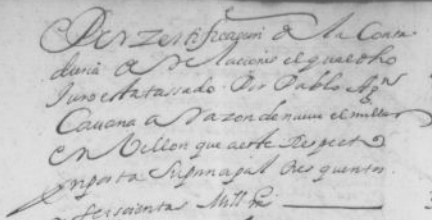 Por zertificacion de la Conta
duria de Relaciones el qual dho
Juro esta tassado Por Pablo Agn
Cauana a Razon de nueue el millar
en Vellon que a este Respecto
ynporta su prinzipal tres quentos
seiscientas Mill